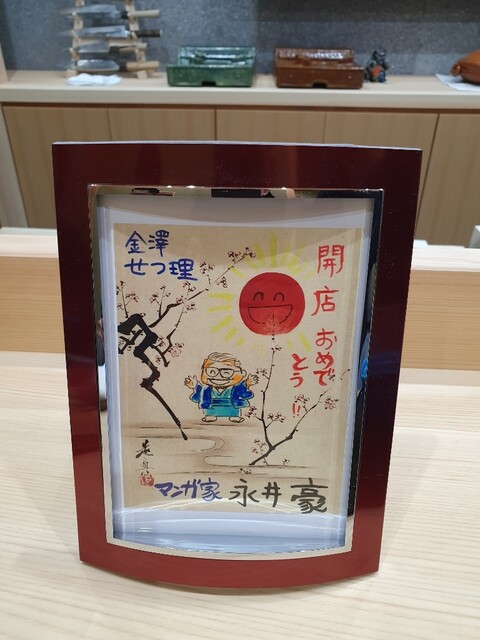 金澤
せつ理
開店おめで
とう!!
マンガ家 永井豪